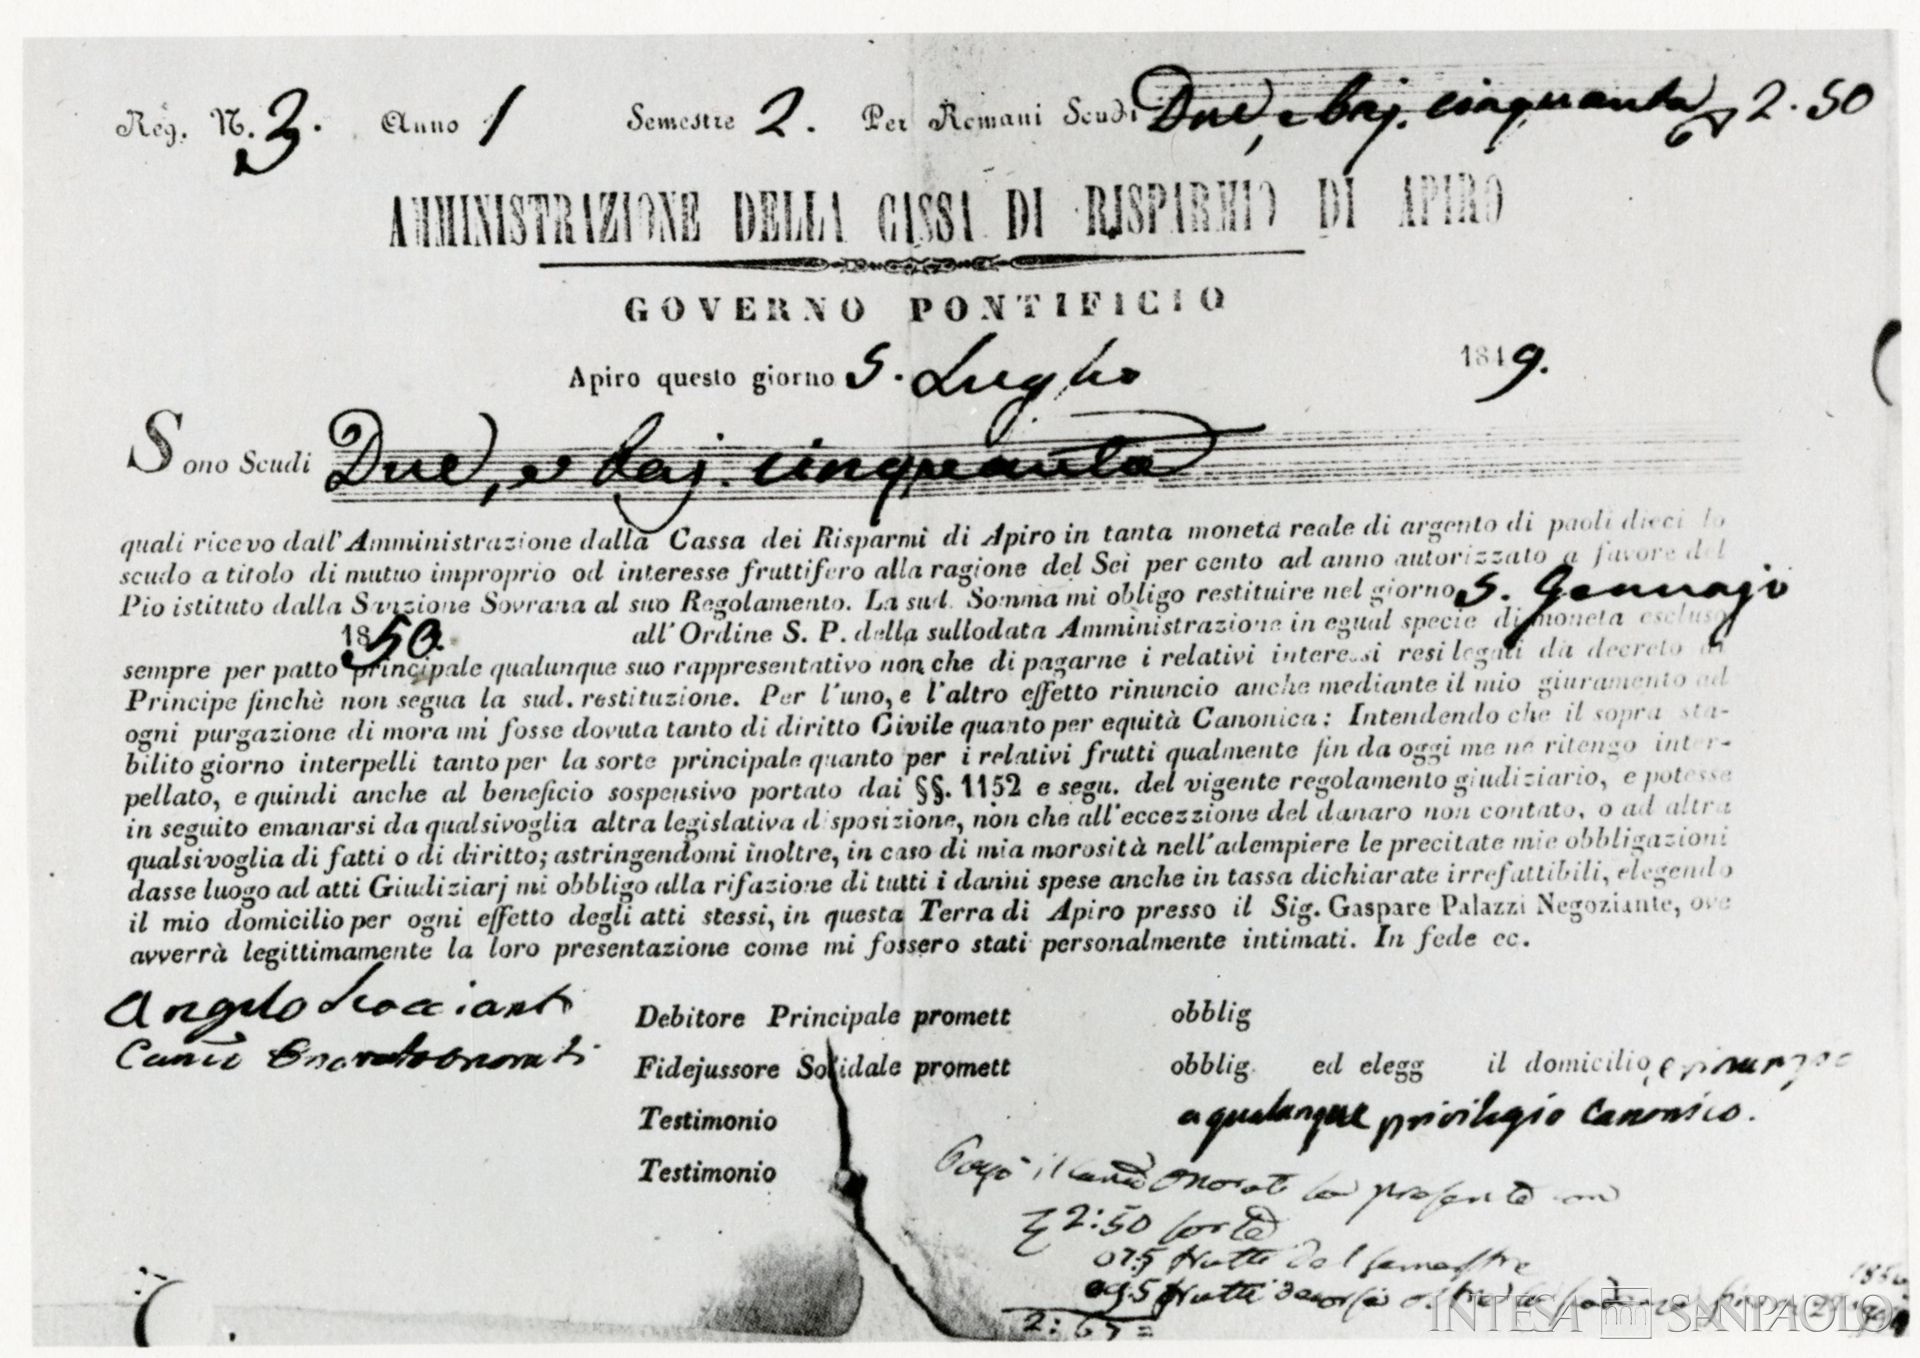 Reg. N. 3. Anno 1 Semestre 2. Per Romani Scudi Due, e baj. cinquanta 2.50
AMMINISTRAZIONE DELLA CASSA DI RISPARMIO DI APIRO
GOVERNO PONTIFICIO
Apiro questo giorno 5. Luglio 1849.
Sono Scudi Due, e baj. cinquanta
quali ricevo dall'Amministrazione dalla Cassa dei Risparmi di Apiro in tanta moneta reale di argento di paoli dieci lo
scudo a titolo di mutuo improprio od interesse fruttifero alla ragione del Sei per cento ad anno autorizzato a favore del
Pio istituto dalla Sanzione Sovrana al suo Regolamento. La sud. Somma mi obligo restituire nel giorno 5. Gennajo
1850. all'Ordine S. P. della sullodata Amministrazione in egual specie di moneta escluso
sempre per patto principale qualunque suo rappresentativo non che di pagarne i relativi interessi resi legati da decreto di
Principe finchè non segua la sud. restituzione. Per l'uno, e l'altro effetto rinuncio anche mediante il mio giuramento ad
ogni purgazione di mora mi fosse dovuta tanto di diritto Civile quanto per equità Canonica: Intendendo che il sopra sta-
bilito giorno interpelli tanto per la sorte principale quanto per i relativi frutti qualmente fin da oggi me ne ritengo inter-
pellato, e quindi anche al beneficio sospensivo portato dai §§. 1152 e segu. del vigente regolamento giudiziario, e potesse
in seguito emanarsi da qualsivoglia altra legislativa disposizione, non che all'eccezzione del danaro non contato, o ad altra
qualsivoglia di fatti o di diritto; astringendomi inoltre, in caso di mia morosità nell'adempiere le precitate mie obbligazioni
dasse luogo ad atti Giudiziarj mi obbligo alla rifazione di tutti i danni spese anche in tassa dichiarate irrefattibili, elegendo
il mio domicilio per ogni effetto degli atti stessi, in questa Terra di Apiro presso il Sig. Gaspare Palazzi Negoziante, ove
avverrà legittimamente la loro presentazione come mi fossero stati personalmente intimati. In fede ec.
Angelo Scaccianti Debitore Principale promett obblig
Fidejussore Solidale promett obblig ed elegg il domicilio, e rinunzia
Testimonio a qualunque privilegio Canonico.
Testimonio
Pagò il Can Onorati la presente
2:50 sorte
07:5 frutti del semestre
09.5 frutti
2:67
INTESA SANPAOLO